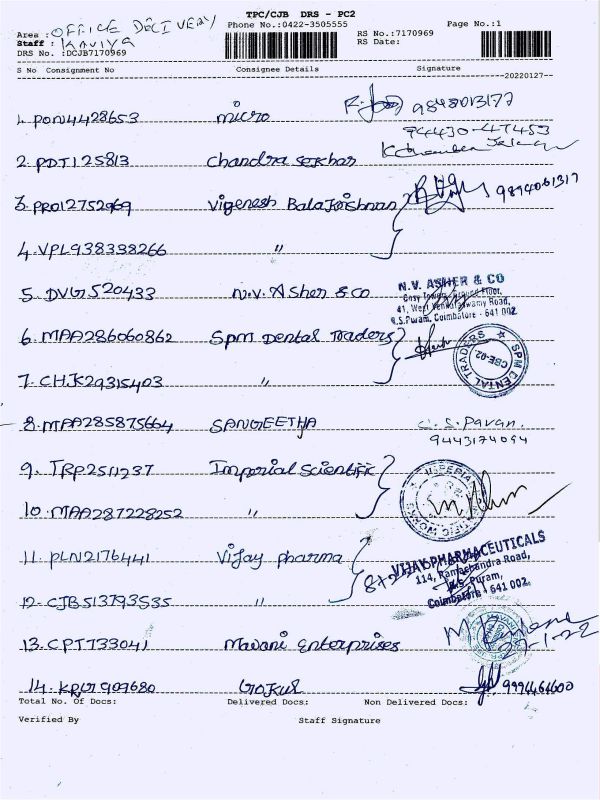 TPC/CJB DRS - PC2
Phone No.:0422-3505555 Page No.:1
Area : OFFICE DELIVERY
Staff : KAVIYA
RS No.:7170969
DRS No. :DCJB7170969 RS Date:
S No Consignment No Consignee Details Signature
20220127
1. PON4428653 micro 9848013177
94430-47453
2. PDT125813 Chandra sekhar
3. PRO12752969 Vigenesh Balakrishnan 9894061317
4. VPL938338266 "
5. DVG520433 N.V. Asher & co
N.V. ASHER & CO
Cosy Towers, Ground Floor,
41, West Venkataswamy Road,
R.S.Puram, Coimbatore - 641 002.
6. MAA286060862 Spm Dental Traders
SPM DENTAL TRADERS
CBE-02
7. CHK29315403 "
8. MAA285875664 SANGEETHA C. S. Pavan.
9443174094
9. TRP2511237 Imperial Scientific
10. MAA287228252 "
11. PLN2176441 Vijay pharma
VIJAY PHARMACEUTICALS
114, Ramachandra Road,
R.S. Puram,
Coimbatore - 641 002.
12. CJB513793535 "
13. CPTT33041 Mavani Enterprises
27-1-22
14. KRG1909680 GOKUL 9994464600
Total No. Of Docs: Delivered Docs: Non Delivered Docs:
Verified By Staff Signature